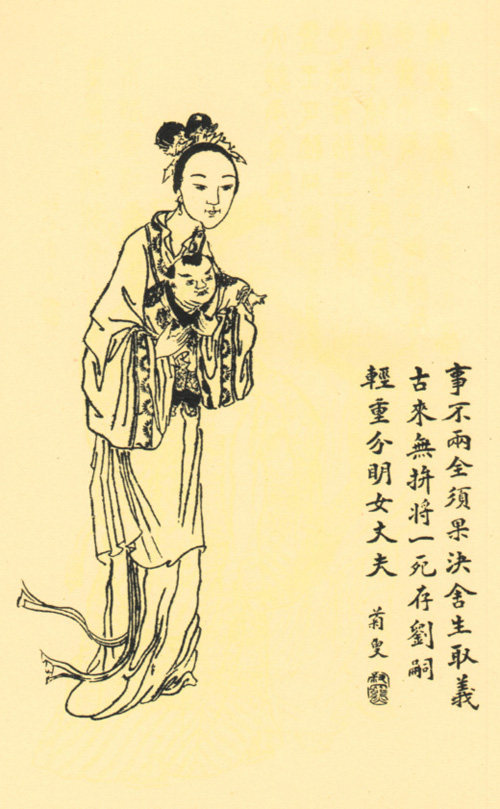 事不兩全須果決舍生取義
古來無拚將一死存劉嗣
輕重分明女丈夫
菊叟